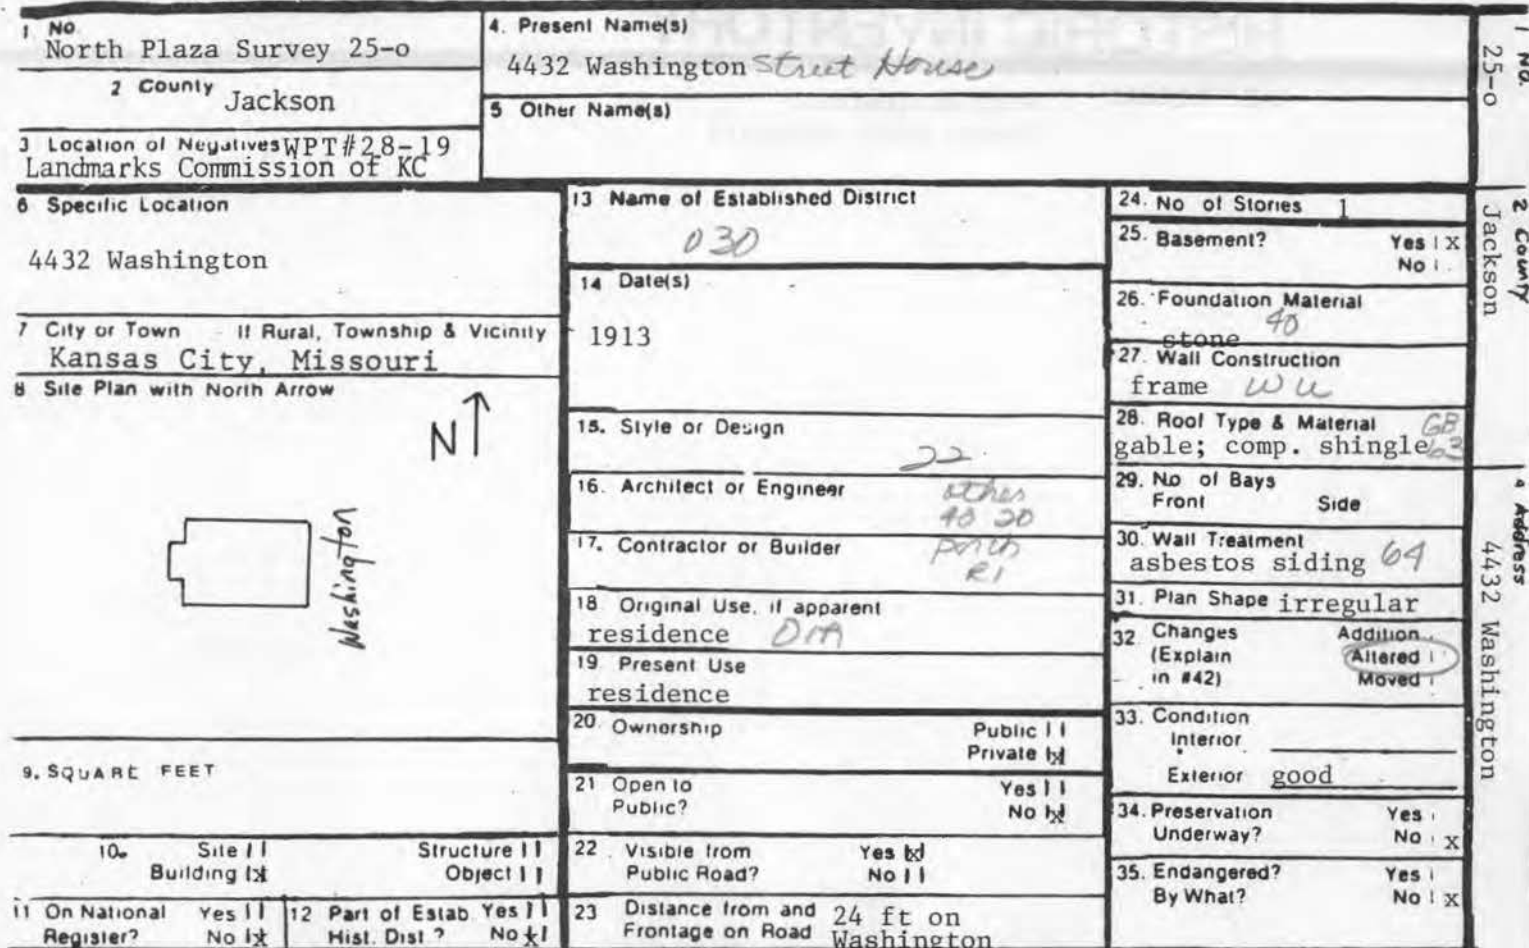 1 No.
North Plaza Survey 25-o
2 County Jackson
3 Location of Negatives WPT#28-19
Landmarks Commission of KC
4. Present Name(s)
4432 Washington Street House
5 Other Name(s)
6 Specific Location
4432 Washington
7 City or Town If Rural, Township & Vicinity
Kansas City, Missouri
8 Site Plan with North Arrow
N
Washington
9. SQUARE FEET
10. Site
Structure
Building x
Object
11 On National Register? Yes
No x
12 Part of Estab. Hist. Dist.? Yes
No x
13 Name of Established District
030
14 Date(s)
1913
15. Style or Design
22
16. Architect or Engineer
other
40 20
17. Contractor or Builder
porch
R1
18. Original Use, if apparent
residence
19. Present Use
residence
20. Ownership
Public
Private x
21 Open to Public?
Yes
No x
22 Visible from Public Road?
Yes x
No
23 Distance from and Frontage on Road
24 ft on
Washington
24. No of Stories 1
25. Basement?
Yes x
No
26. Foundation Material
40
stone
27. Wall Construction
frame
28. Roof Type & Material GB
gable; comp. shingle 63
29. No of Bays
Front Side
30. Wall Treatment
asbestos siding 64
31. Plan Shape irregular
32 Changes
(Explain
in #42)
Addition
Altered
Moved
33. Condition
Interior
Exterior good
34. Preservation
Underway?
Yes
No x
35. Endangered?
By What?
Yes
No x
1 No.
25-o
2 County
Jackson
4 Address
4432 Washington